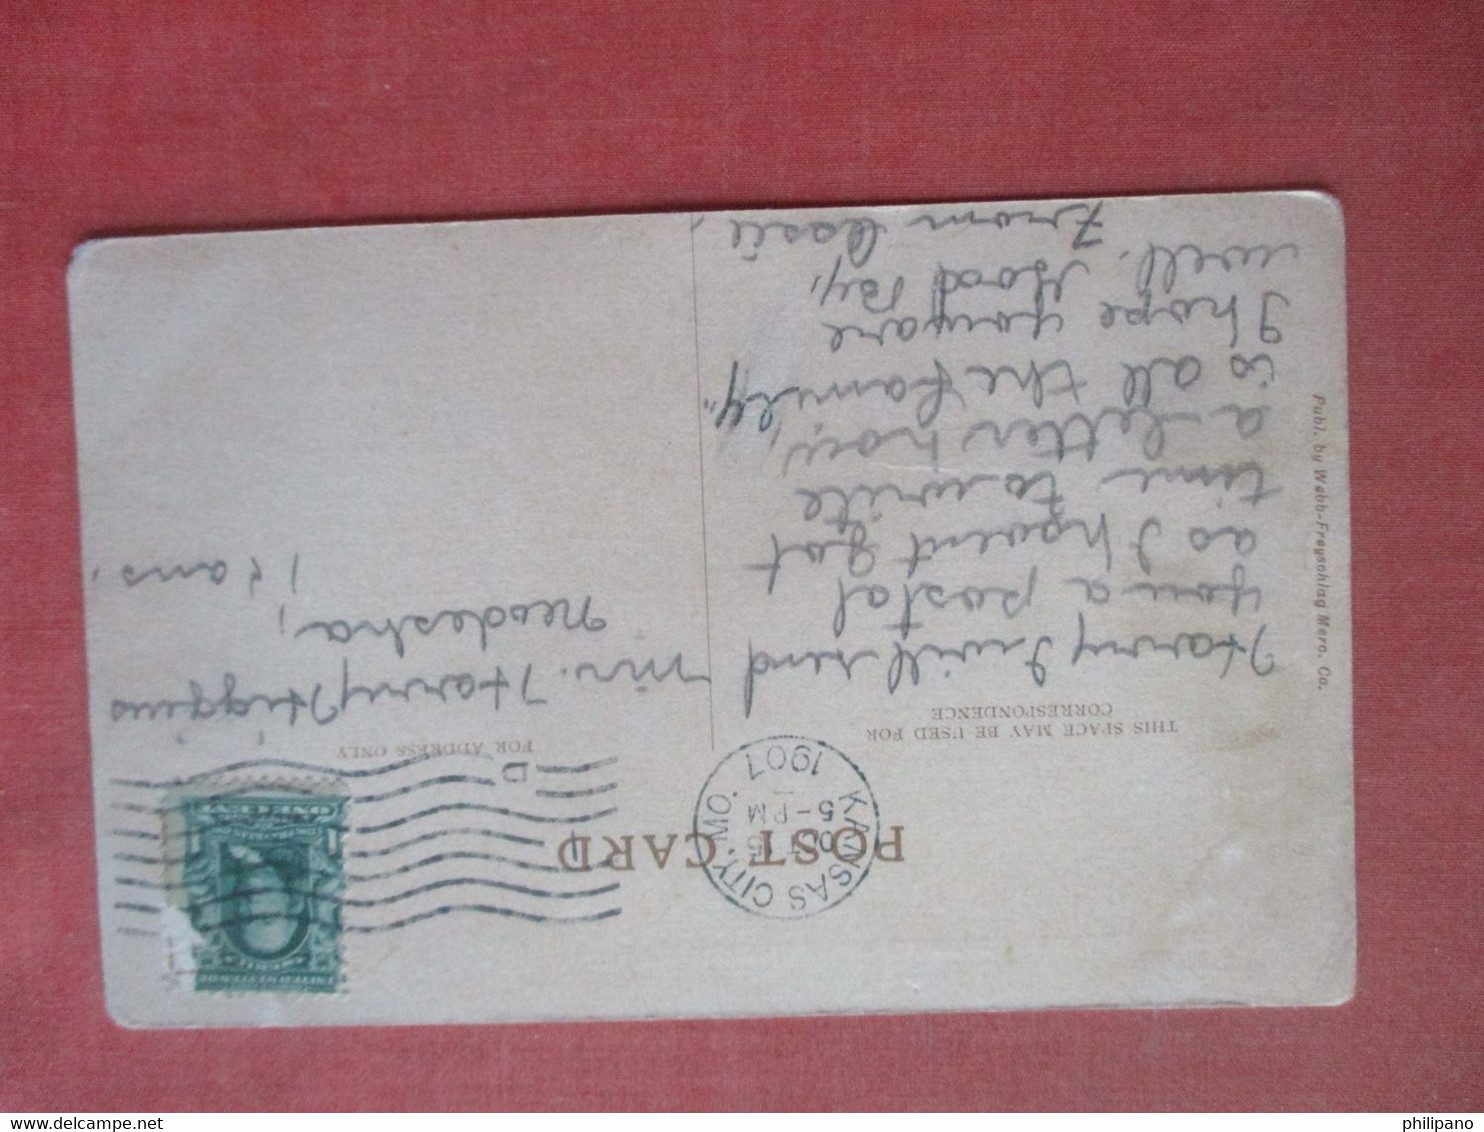 POST CARD
THIS SPACE MAY BE USED FOR
CORRESPONDENCE
FOR ADDRESS ONLY
KANSAS CITY, MO.
5-PM
1907
D
ONE CENT
Harry I will send
you a postal
as I havent got
time to write
a letter now,
is all the family"
I hope you are
well. Good By,
From
Mr. Harry Higgins
Neodesha,
Kans.
Publ. by Webb-Freyschlag Merc. Co.
delcampe.net
philipano